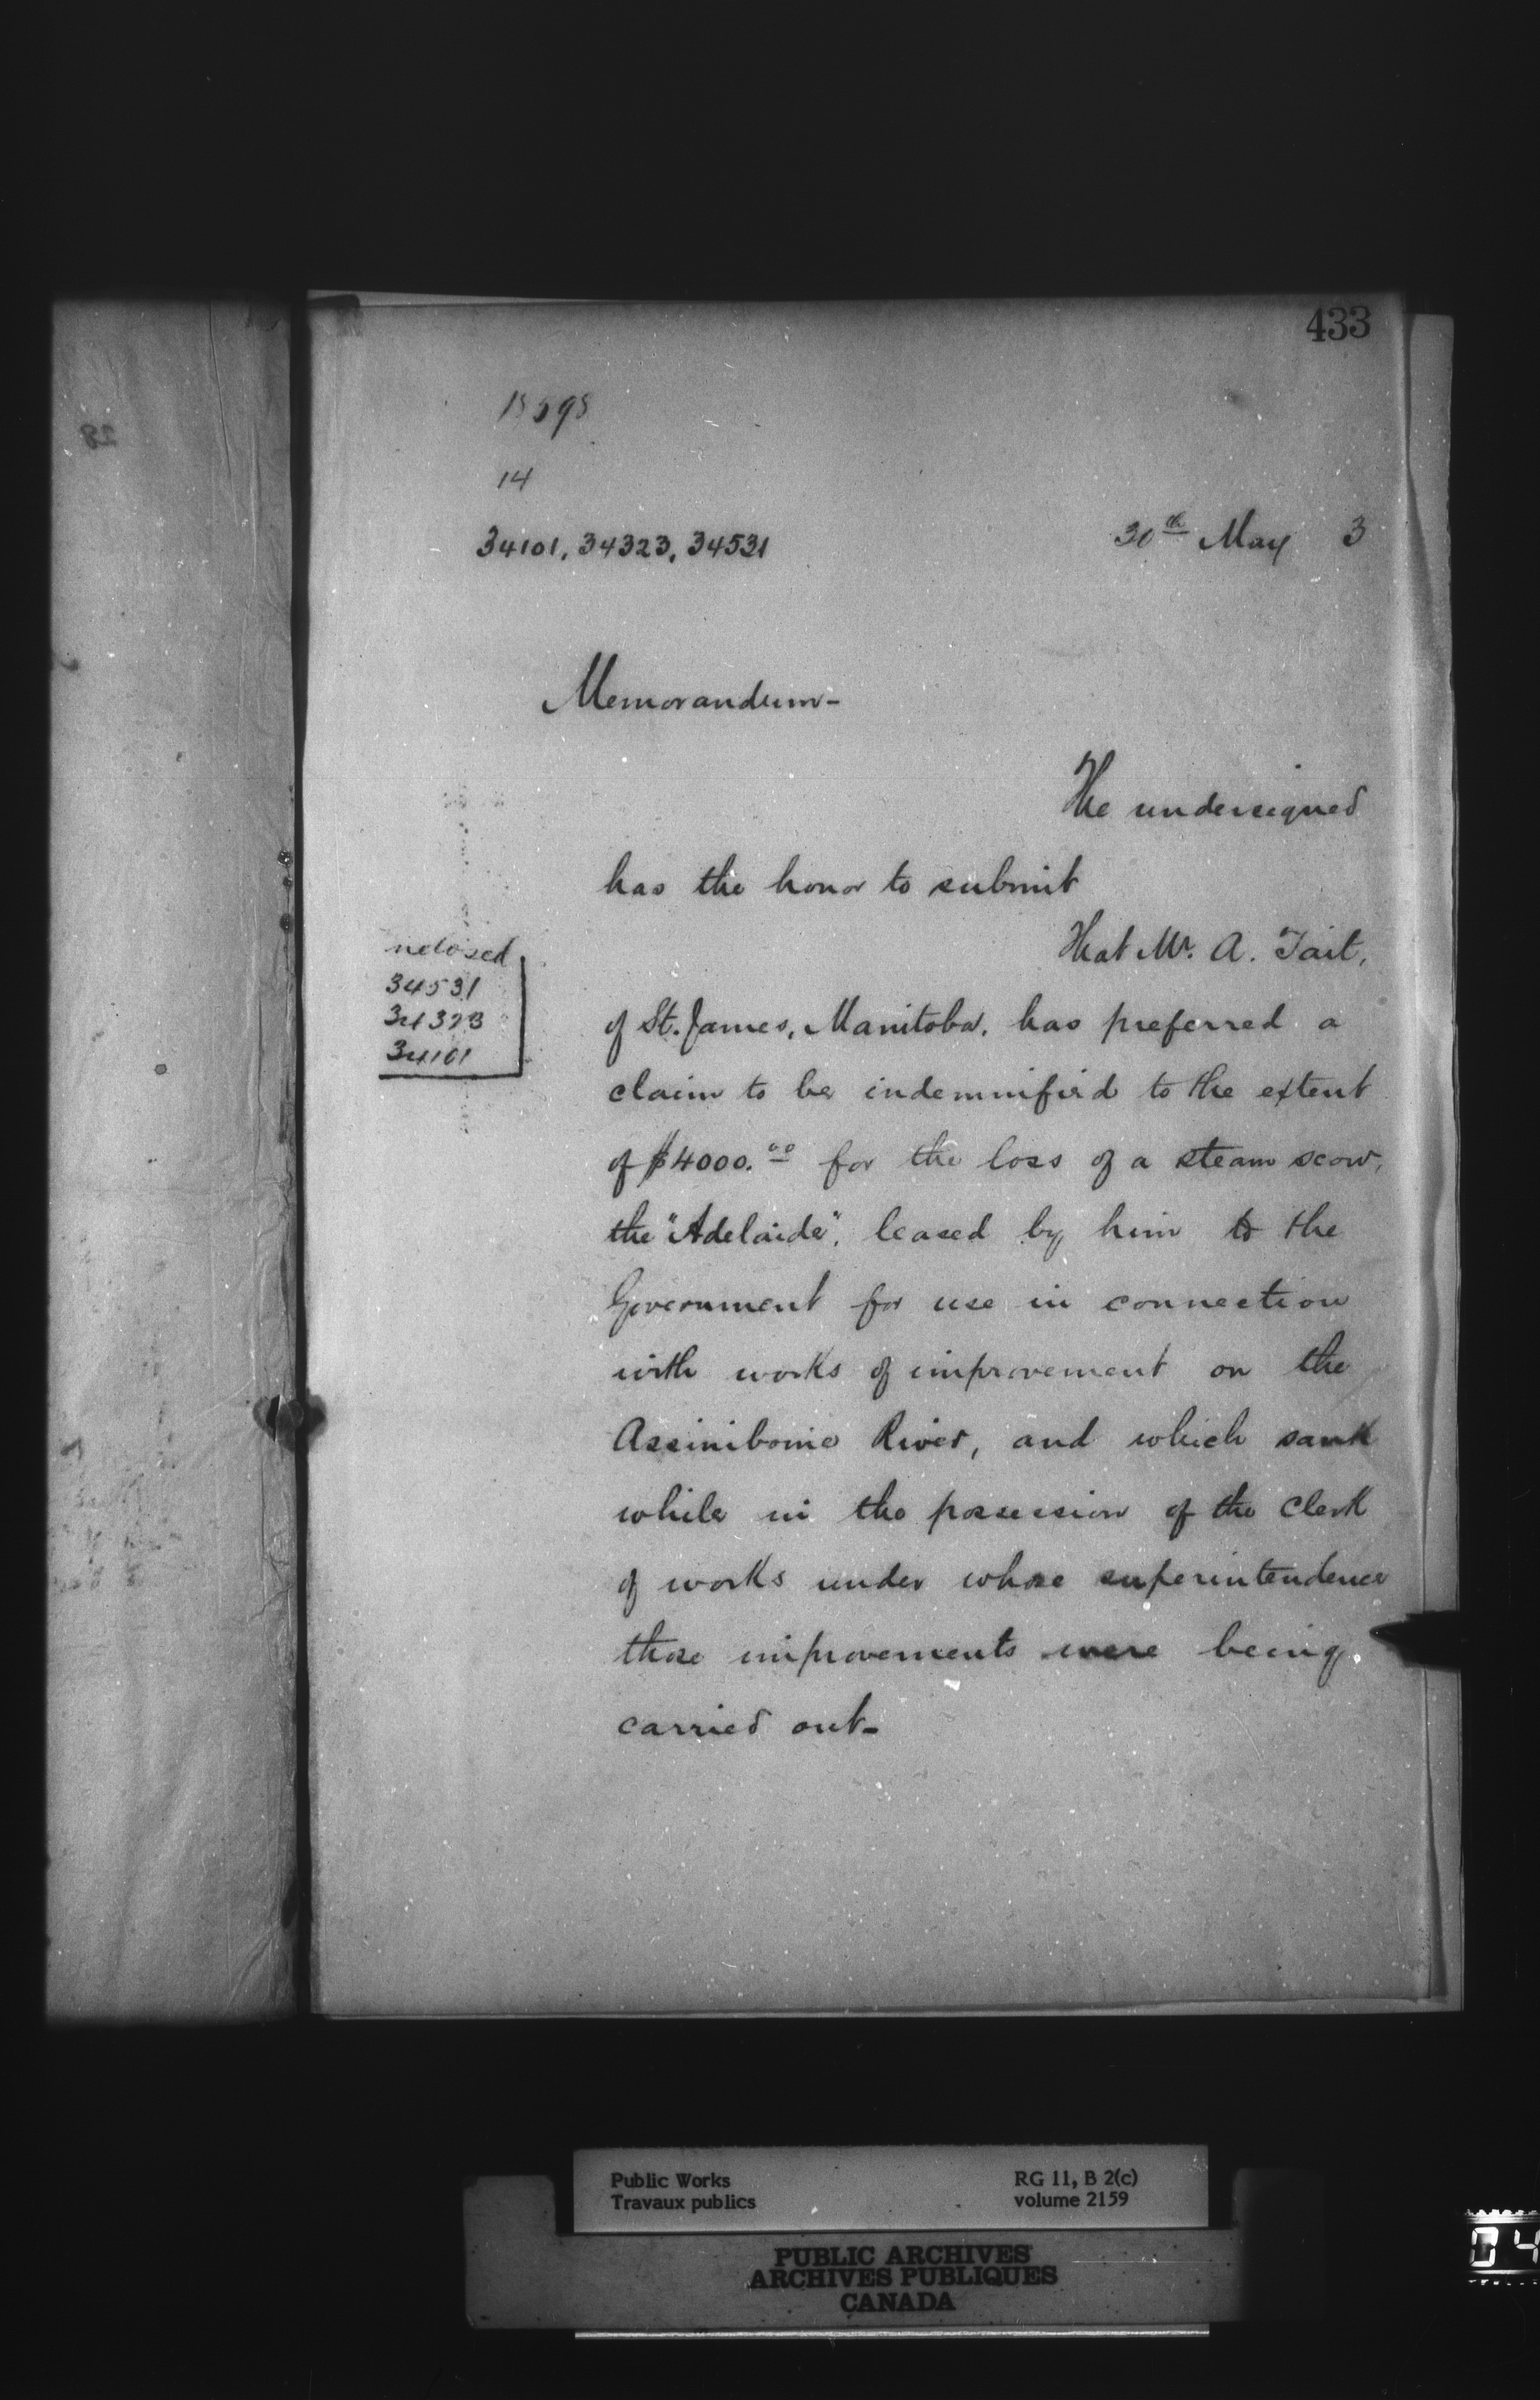 433
14
34101, 34323, 34531
30th May 3
Memorandum-
The undersigned
has the honor to submit
That Mr. A. Tait,
nclosed
34531
34323
34101
of St. James, Manitoba, has preferred a
claim to be indemnified to the extent
of $4000.00 for the loss of a steam scow,
the "Adelaide", leased by him to the
Government for use in connection
with works of improvement on the
Assiniboine River, and which sank
while in the possession of the Clerk
of works under whose superintendence
those improvements were being
carried out-
Public Works
Travaux publics
RG 11, B 2(c)
volume 2159
PUBLIC ARCHIVES
ARCHIVES PUBLIQUES
CANADA
04